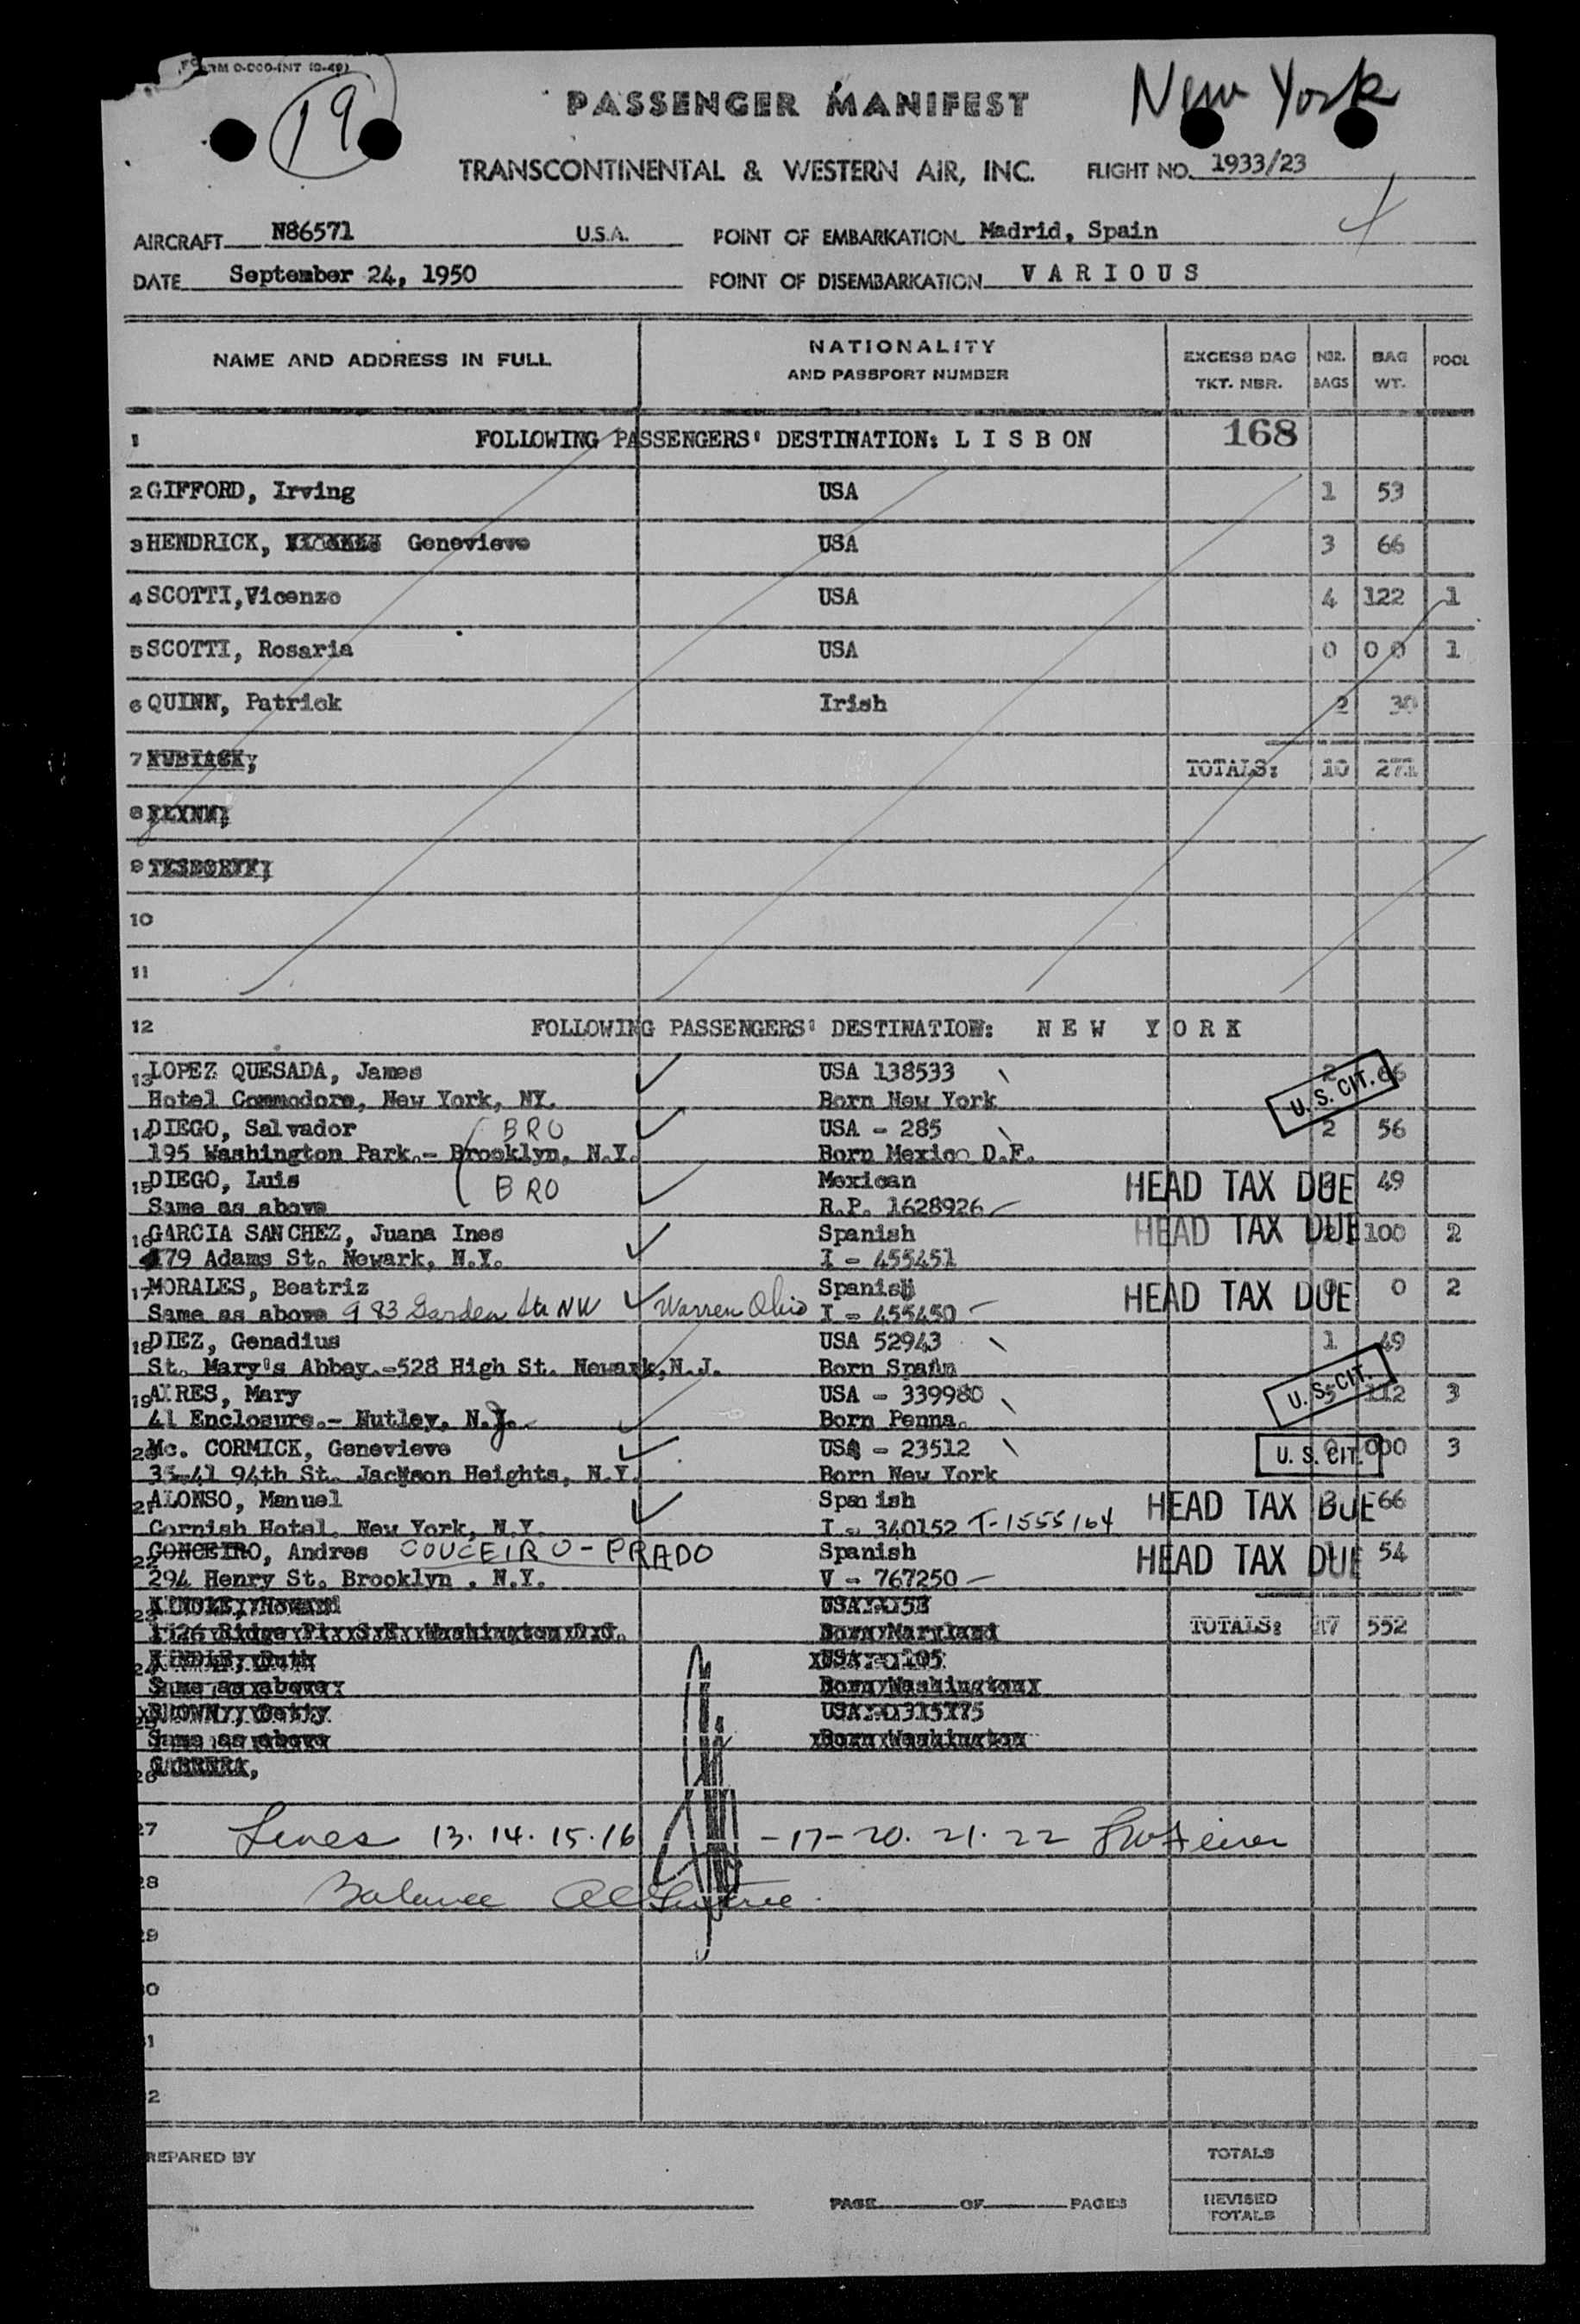 FORM O-000-INT (9-49)
19
PASSENGER MANIFEST
New York
TRANSCONTINENTAL & WESTERN AIR, INC. FLIGHT NO. 1933/23
AIRCRAFT N86571 U.S.A. POINT OF EMBARKATION Madrid, Spain
DATE September 24, 1950 POINT OF DISEMBARKATION V A R I O U S
NAME AND ADDRESS IN FULL NATIONALITY AND PASSPORT NUMBER EXCESS BAG TKT. NBR. NBR. BAGS BAG WT. POOL
1 FOLLOWING PASSENGERS' DESTINATION: L I S B O N 168
2 GIFFORD, Irving USA 1 53
3 HENDRICK, Genevieve USA 3 66
4 SCOTTI,Vicenzo USA 4 122 1
5 SCOTTI, Rosaria USA 0 00 1
6 QUINN, Patrick Irish 2 30
7 TOTALS: 10 271
8
9
10
11
12 FOLLOWING PASSENGERS' DESTINATION: N E W Y O R K
13 LOPEZ QUESADA, James USA 138533 2 66 U.S. CIT.
Hotel Commodore, New York, NY. Born New York
14 DIEGO, Salvador BRO USA - 285 2 56
195 Washington Park.- Brooklyn, N.Y. Born Mexico D.F.
15 DIEGO, Luis BRO Mexican HEAD TAX DUE 49
Same as above R.P. 1628926
16 GARCIA SANCHEZ, Juana Ines Spanish HEAD TAX DUE 100 2
179 Adams St. Newark, N.Y. I - 455451
17 MORALES, Beatriz Spanish HEAD TAX DUE 0 2
Same as above 983 Garden St NW Warren Ohio I - 455450
18 DIEZ, Genadius USA 52943 1 49
St. Mary's Abbey.-528 High St. Newark,N.J. Born Spain
19 AYRES, Mary USA - 339980 U.S. CIT. 5 112 3
41 Enclosure.- Nutley, N.J. Born Penna.
20 Mc. CORMICK, Genevieve USA - 23512 U.S. CIT. 000 3
35-41 94th St. Jackson Heights, N.Y. Born New York
21 ALONSO, Manuel Spanish HEAD TAX DUE 66
Cornish Hotel. New York, N.Y. I - 340152 T-1555164
22 CONCEIRO, Andres COUCEIRO-PRADO Spanish HEAD TAX DUE 54
294 Henry St. Brooklyn . N.Y. V - 767250
23 TOTALS: 17 552
24
25
26
27 Lines 13.14.15.16 -17-20.21.22
28 Balance
29
30
31
32
PREPARED BY TOTALS
PAGE OF PAGES REVISED TOTALS